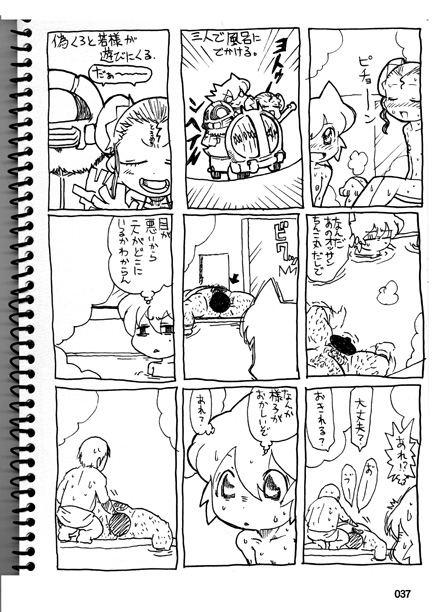 偽くろと若様が
遊びにくる.
だぁ〜〜〜
三人で風呂に
でかける。
ヨトゥ
ピチョーン
目が
悪いから
二人がどこに
いるかわからん
ビクッ
なんだ
あのオッサン
ちんこ丸だしで
なんか
様子が
おかしいぞ
あれ?
大丈夫?
おきれる?
あれ!?
037